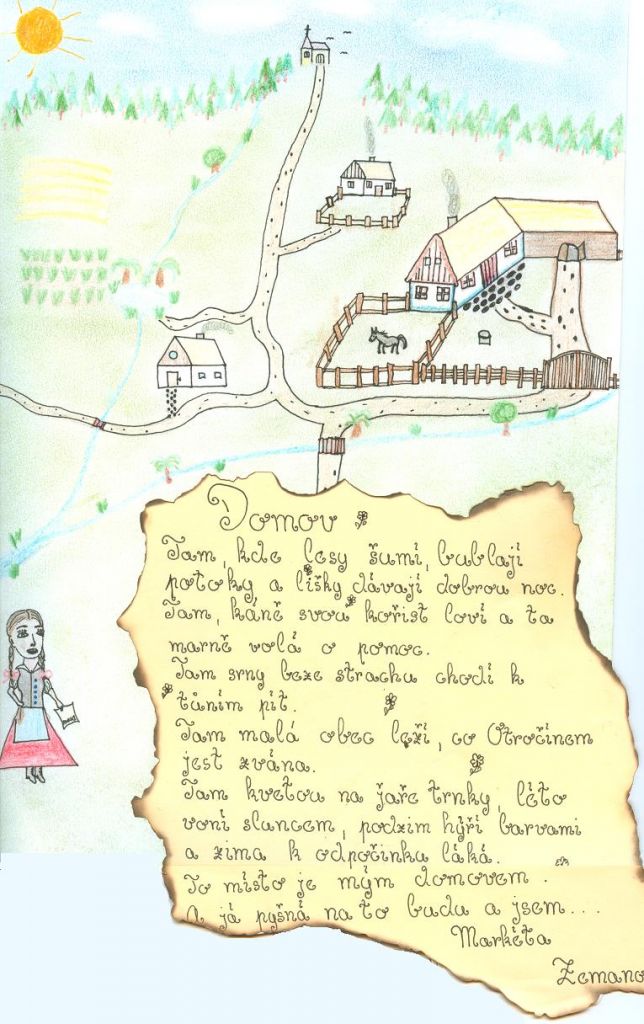 Domov
Tam, kde lesy šumí, bublají
potoky, a lišky dávají dobrou noc.
Tam, káně svou kořist loví a ta
marně volá o pomoc.
Tam srny beze strachu chodí k
tůním pít.
Tam malá obec leží, co Otročínem
jest zvána.
Tam kvetou na jaře trnky, léto
voní sluncem, podzim hýří barvami
a zima k odpočinku láká.
To místo je mým domovem.
A já pyšná na to budu a jsem...
Markéta
Zemano